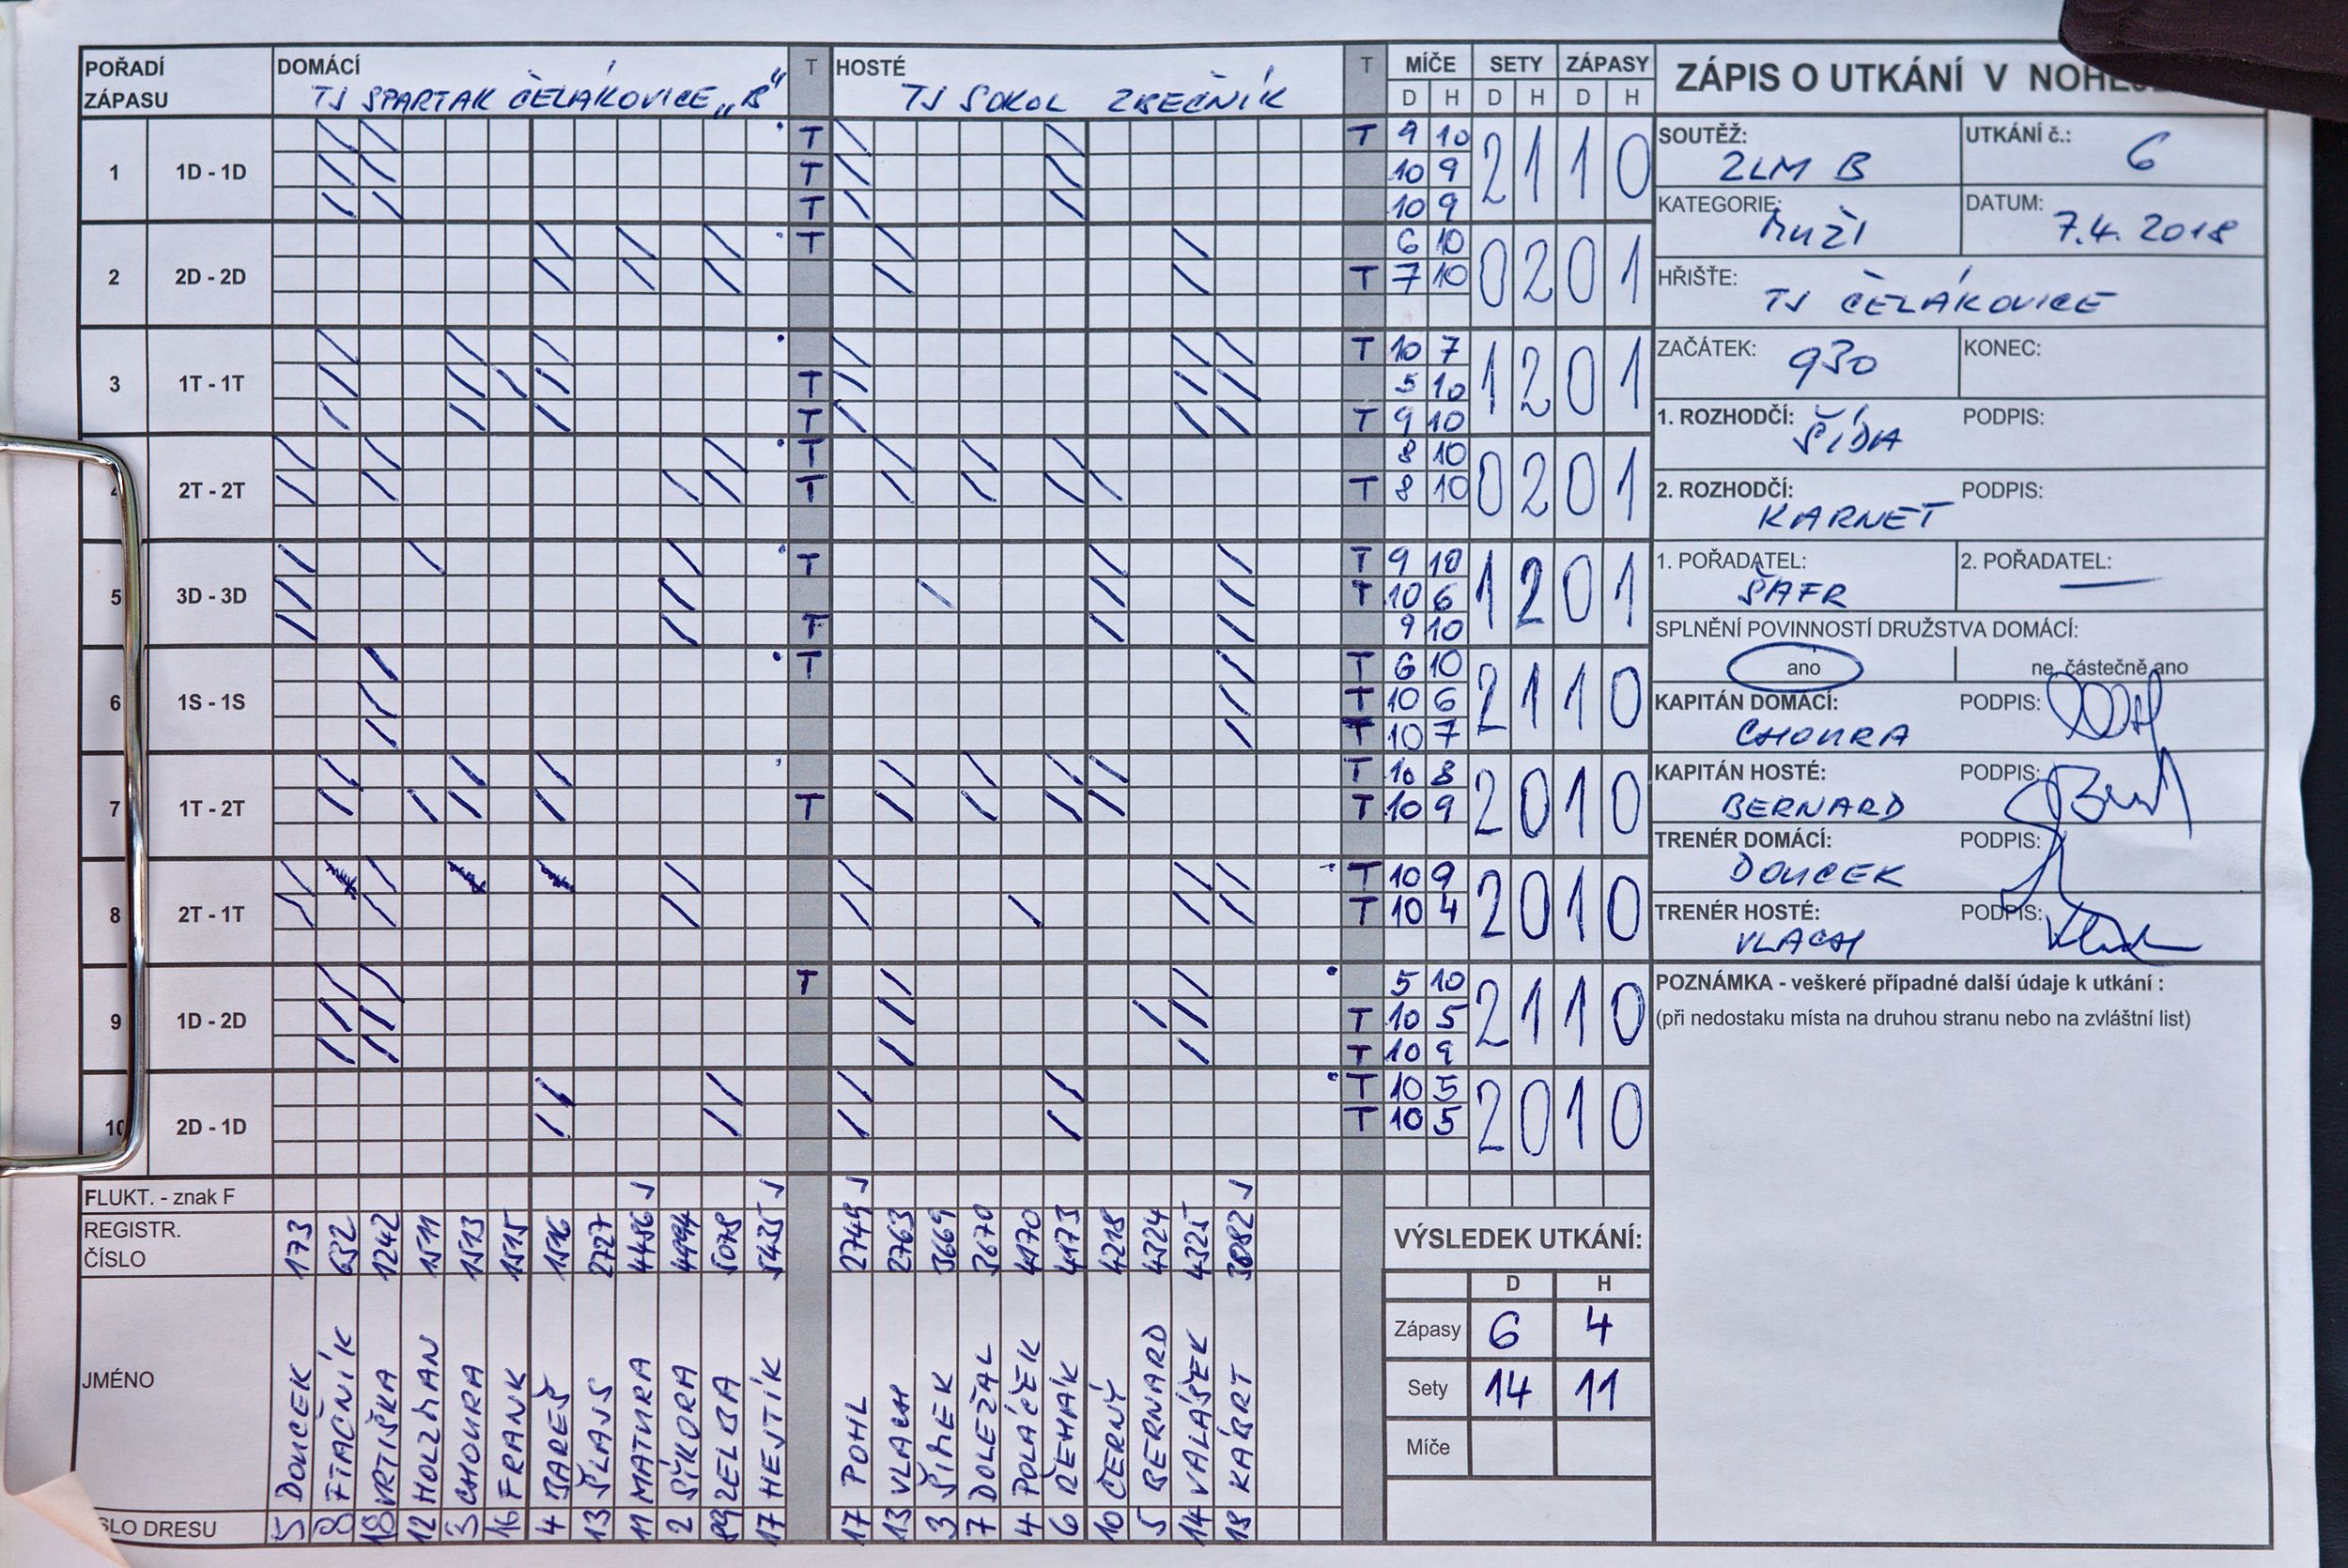 POŘADÍ ZÁPASU DOMÁCÍ T HOSTÉ T MÍČE SETY ZÁPASY
TJ SPARTAK ČELÁKOVICE „B" TJ SOKOL ZBEČNÍK D H D H D H
1 1D - 1D T T 9 10 2 1 1 0
T 10 9
T 10 9
2 2D - 2D T 6 10 0 2 0 1
T 7 10
3 1T - 1T T 10 7 1 2 0 1
T 5 10
T T 9 10
2T - 2T T 8 10 0 2 0 1
T T 8 10
5 3D - 3D T T 9 10 1 2 0 1
T 10 6
T 9 10
6 1S - 1S T T 6 10 2 1 1 0
T 10 6
T 10 7
7 1T - 2T T 10 8 2 0 1 0
T T 10 9
8 2T - 1T T 10 9 2 0 1 0
T 10 4
9 1D - 2D T 5 10 2 1 1 0
T 10 5
T 10 9
10 2D - 1D T 10 5 2 0 1 0
T 10 5
FLUKT. - znak F
REGISTR. ČÍSLO 173 632 1242 1511 1513 1515 1516 2727 4486 4994 5078 5435 2749 2763 3669 3670 4170 4173 4218 4324 4325 3882
JMÉNO DOUCEK FTAČNÍK VRTIŠKA HOLZMAN CHOURA FRANK BAREŠ ŠLAJS MATURA SÝKORA ZELBA HEJTÍK POHL VLACH ŠIMEK DOLEŽAL POLÁČEK ŘEHÁK ČERNÝ BERNARD VALÁŠEK KÁBRT
SLO DRESU 5 8 18 12 3 16 4 13 11 2 89 17 17 13 3 7 4 6 10 5 14 18
VÝSLEDEK UTKÁNÍ:
D H
Zápasy 6 4
Sety 14 11
Míče
ZÁPIS O UTKÁNÍ V
SOUTĚŽ: 2LM B
UTKÁNÍ č.: 6
KATEGORIE: MUŽI
DATUM: 7.4. 2018
HŘIŠTĚ: TJ ČELÁKOVICE
ZAČÁTEK: 930
KONEC:
1. ROZHODČÍ: ŠÍDA
PODPIS:
2. ROZHODČÍ: KARNET
PODPIS:
1. POŘADATEL: ŠAFR
2. POŘADATEL:
SPLNĚNÍ POVINNOSTÍ DRUŽSTVA DOMÁCÍ:
ano ne, částečně ano
KAPITÁN DOMÁCÍ: CHOURA
PODPIS:
KAPITÁN HOSTÉ: BERNARD
PODPIS:
TRENÉR DOMÁCÍ: DOUCEK
PODPIS:
TRENÉR HOSTÉ: VLACH
PODPIS:
POZNÁMKA - veškeré případné další údaje k utkání :
(při nedostaku místa na druhou stranu nebo na zvláštní list)